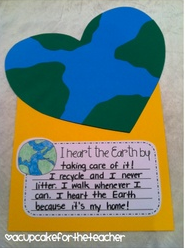 I heart the Earth by
taking care of it!
I recycle and I never
litter. I walk whenever I
can. I heart the Earth
because it's my home!
♡acupcakefortheteacher